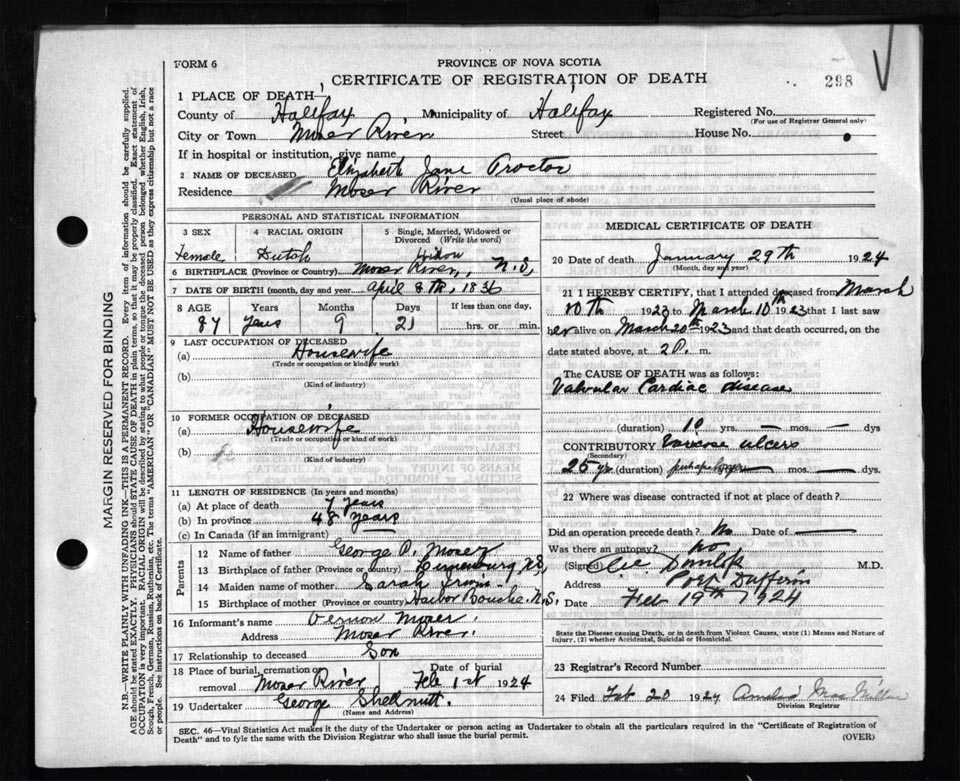 FORM 6
PROVINCE OF NOVA SCOTIA
CERTIFICATE OF REGISTRATION OF DEATH
298
1 PLACE OF DEATH—
County of Halifax Municipality of Halifax Registered No.
(For use of Registrar General only)
City or Town Moser River Street House No.
If in hospital or institution, give name
2 NAME OF DECEASED Elizabeth Jane Proctor
Residence Moser River
(Usual place of abode)
PERSONAL AND STATISTICAL INFORMATION
3 SEX 4 RACIAL ORIGIN 5 Single, Married, Widowed or
Divorced (Write the word)
Female Dutch Widow
6 BIRTHPLACE (Province or Country) Moser River, N.S.
7 DATE OF BIRTH (month, day and year April 8th, 1836
8 AGE Years Months Days If less than one day,
87 years 9 21 hrs. or min.
9 LAST OCCUPATION OF DECEASED
(a) Housewife
(Trade or occupation or kind of work)
(b)
(Kind of industry)
10 FORMER OCCUPATION OF DECEASED
(a) Housewife
(Trade or occupation or kind of work)
(b)
(Kind of industry)
11 LENGTH OF RESIDENCE (In years and months)
(a) At place of death 7 years
(b) In province 48 years
(c) In Canada (if an immigrant)
Parents
12 Name of father George P. Moser
13 Birthplace of father (Province or country) Lunenburg N.S.
14 Maiden name of mother Sarah Irwin
15 Birthplace of mother (Province or country) Harbor Bouche N.S.
16 Informant's name Vernon Moser
Address Moser River
17 Relationship to deceased Son
18 Place of burial, cremation or Date of burial
removal Moser River Feb 1st 1924
19 Undertaker George Shellnutt.
(Name and Address)
MEDICAL CERTIFICATE OF DEATH
20 Date of death January 29th 1924
(Month, day and year)
21 I HEREBY CERTIFY, that I attended deceased from March
10th 1923 to March 10th 1923 that I last saw
her alive on March 20th 1923 and that death occurred, on the
date stated above, at 2 P. m.
The CAUSE OF DEATH was as follows:
Valvular Cardiac disease
(duration) 10 yrs. — mos. — dys
CONTRIBUTORY Varicose ulcers
(Secondary)
25 yrs (duration) perhaps longer mos. — dys.
22 Where was disease contracted if not at place of death?
Did an operation precede death? No Date of —
Was there an autopsy? No
(Signed) Dunlop M.D.
Address Port Dufferin
Date Feb 19th 1924
State the Disease causing Death, or in death from Violent Causes, state (1) Means and Nature of
Injury, (2) whether Accidental, Suicidal or Homicidal.
23 Registrar's Record Number
24 Filed Feb 20 1924
Division Registrar
SEC. 46—Vital Statistics Act makes it the duty of the Undertaker or person acting as Undertaker to obtain all the particulars required in the "Certificate of Registration of
Death" and to fyle the same with the Division Registrar who shall issue the burial permit.
(OVER)
MARGIN RESERVED FOR BINDING
N.B.—WRITE PLAINLY WITH UNFADING INK—THIS IS A PERMANENT RECORD. Every item of information should be carefully supplied.
AGE should be stated EXACTLY. PHYSICIANS should STATE CAUSE OF DEATH in plain terms, so that it may be properly classified. Exact statement of
OCCUPATION is very important. RACIAL ORIGIN will be described by stating to what people or tongue the deceased person belonged, whether English, Irish,
Scotch, French, German, Russian, Ruthenian, etc. The terms "AMERICAN" or "CANADIAN" MUST NOT BE USED as they express citizenship but not a race
or people. See instructions on back of Certificate.